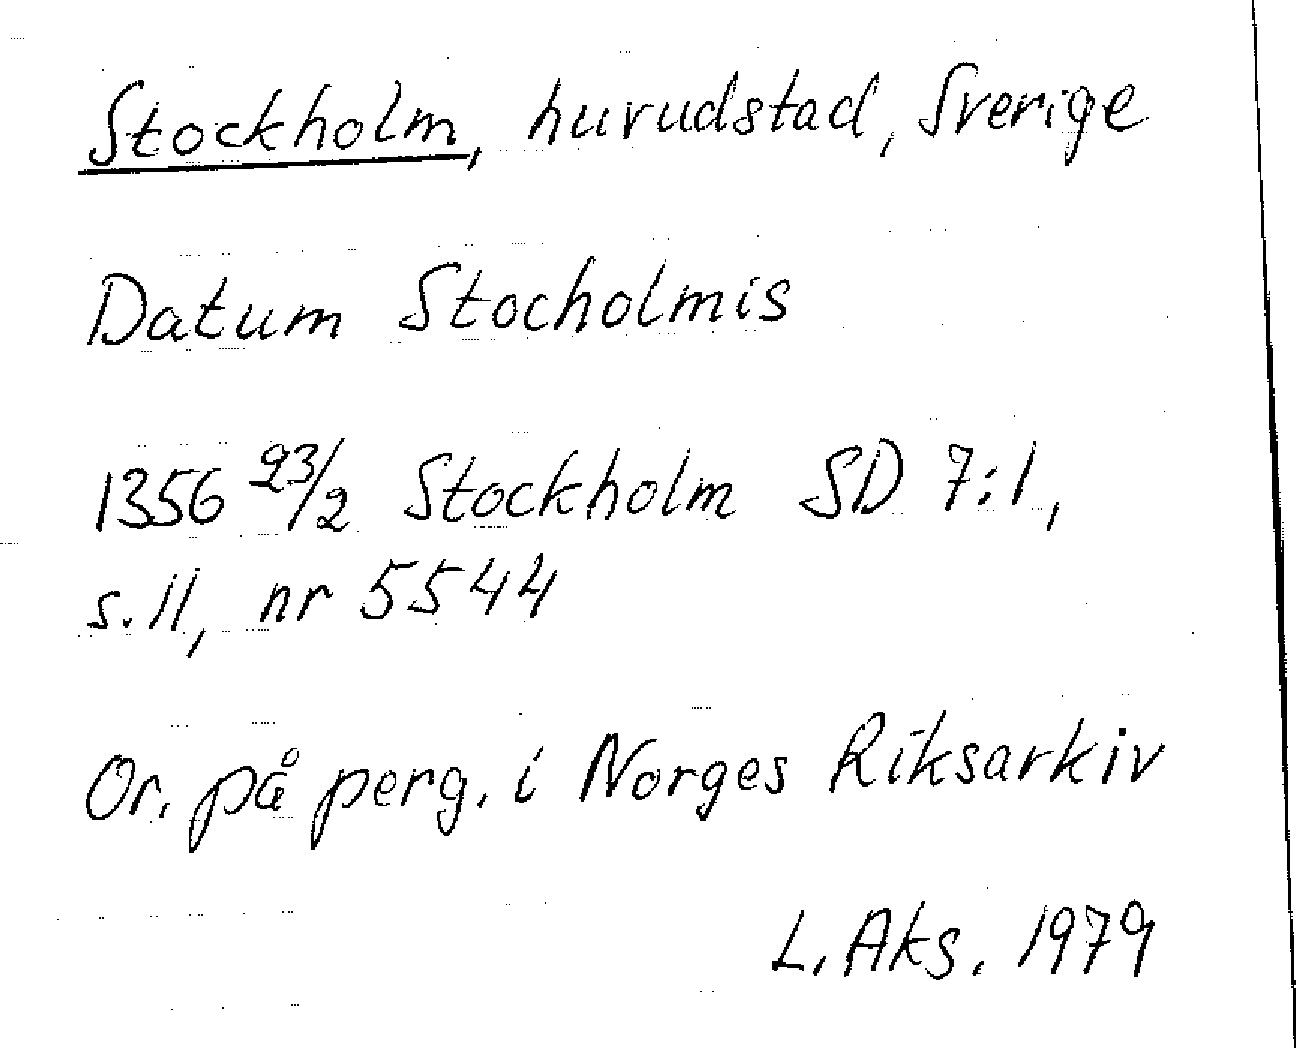 Stockholm, huvudstad, Sverige
Datum Stocholmis
1356 23/2 Stockholm SD 7:1,
s. 11, nr 5544
Or. på perg. i Norges Riksarkiv
L. Aks. 1979